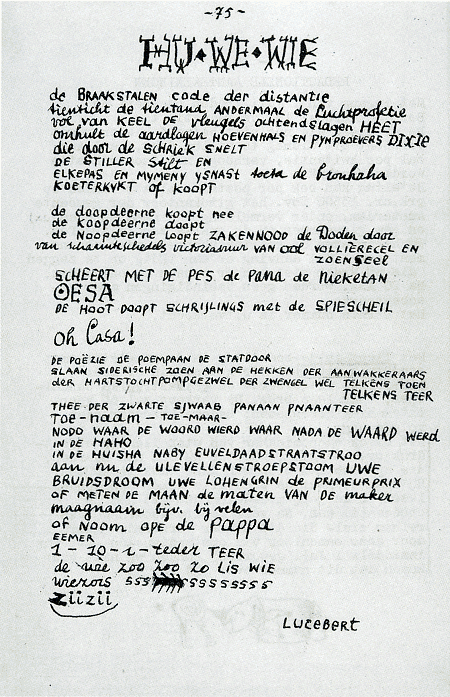 -75-
HU·WE·WIE
de BRAAKSTALEN code der distantie
tienticht de tientand ANDERMAAL de Luchtprofetie
vol van KEEL DE vleugels ochtendslagen HEET
omhult de aardlagen HOEVENHALS EN PYNPROEVERS DIXIE
die door de SCHRIEK SNELT
DE STILLER Stilt EN
ELKEPAS EN MYMENY YSNAST toeta de brouhaha
KOETERKYKT of KOOPT
de doopdeerne koopt nee
de koopdeerne doopt
de Noopdeerne loopt ZAKENNOOD de Doden door
van schaamteschedels victoriamuur VAN ool VOLLIEREGEL EN
ZOENSEEL
SCHEERT MET DE PES de pana de nieketan
OESA
DE HOOT DOOPT SCHRIJLINGS met de SPIESCHEIL
Oh Casa!
DE POËZIE DE POEMPAAN DE STATDOOR
SLAAN SIDERISCHE ZOEN AAN DE HEKKEN DER AANWAKKERAARS
der HARTSTOCHTPOMPGEZWEL DER ZWENGEL WEL TELKENS TOEN
TELKENS TEER
THEE DER ZWARTE SJWAAB PANAAN PNAANTEER
TOE-naam-TOE-MAAR-
NODO WAAR DE WOORD WIERD WAAR NADA DE WAARD WERD
IN DE HAHO
IN DE HUISHA NABY EUVELDAADSTRAATSTROO
aan nu de ULEVELLENSTROEPSTOOM UWE
BRUIDSDROOM UWE LOHENGRIN de PRIMEURPRIX
OF METEN DE MAAN de maten VAN DE maker
maagnaam bijv. bij velen
of NOOM OPE de PAPPA
EEMER
1-10-1-teder TEER
de wée zoo zoo zo LIS WIE
wierois sss sssssssss
ziizii
LUCEBERT